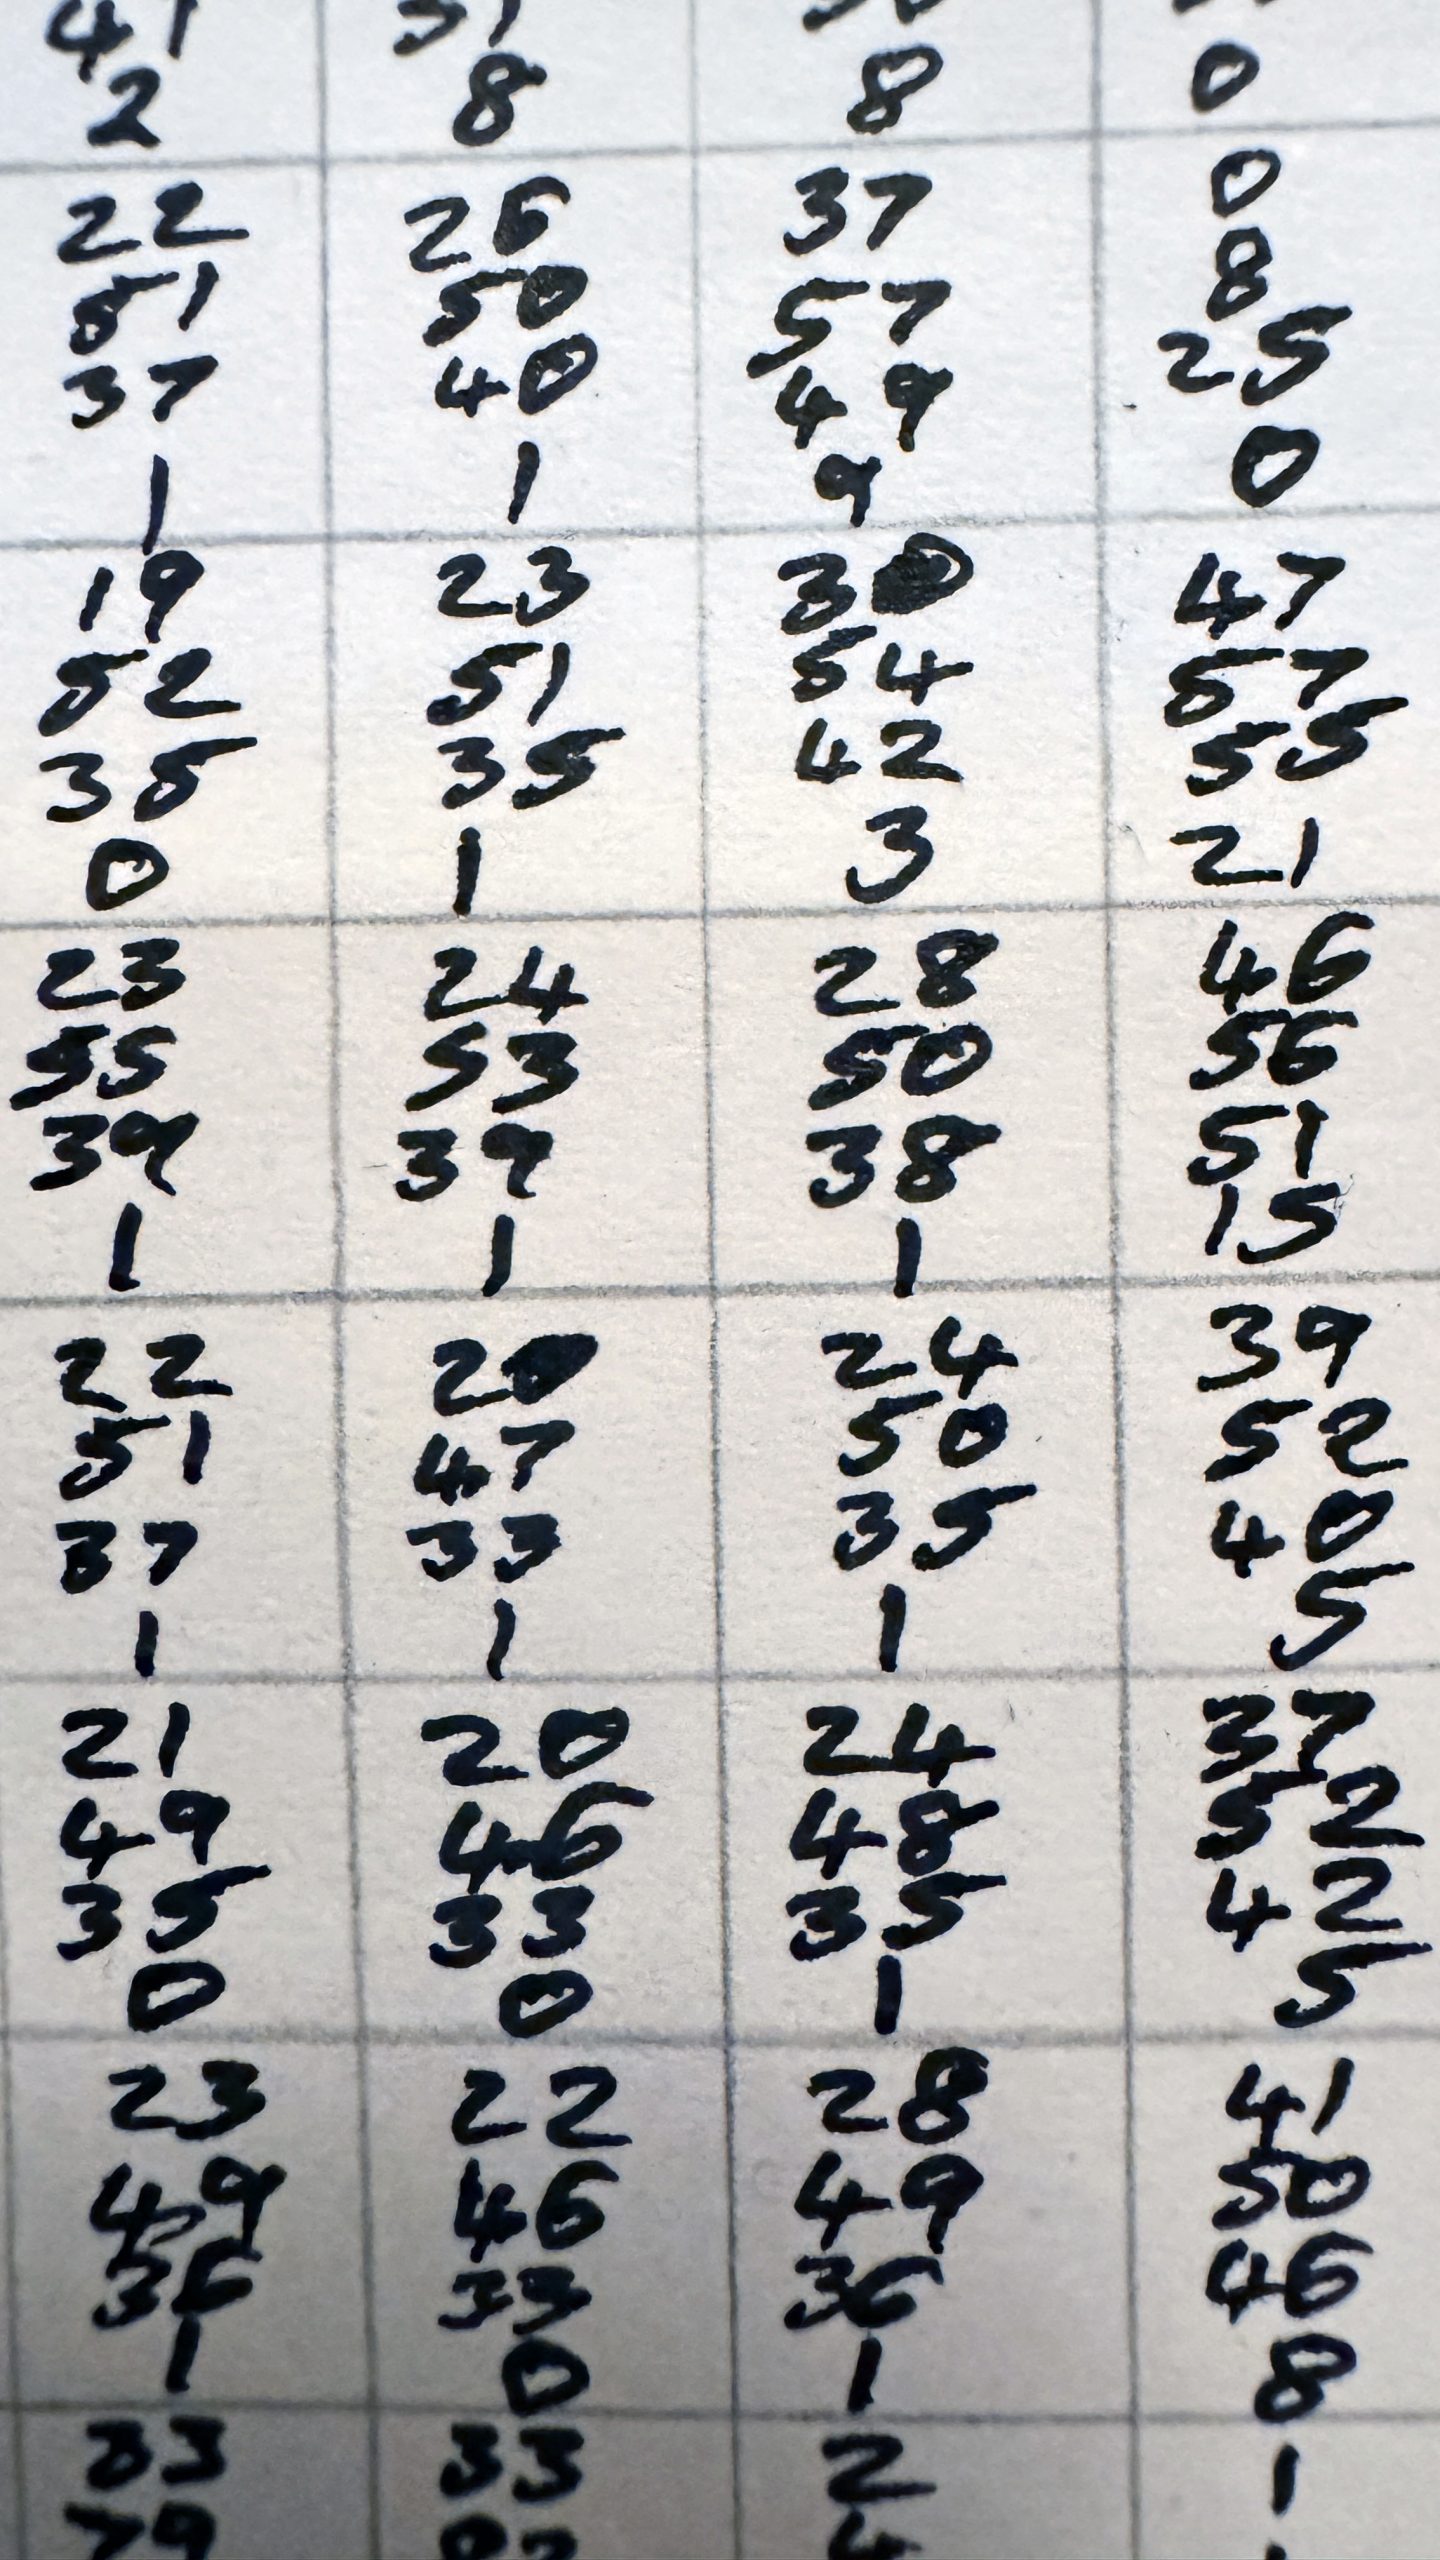 41 31
2 8 8 0
22 26 37 0
51 50 57 8
37 40 49 25
1 1 9 0
19 23 30 47
52 51 54 57
35 35 42 55
0 1 3 21
23 24 28 46
55 53 50 56
39 39 38 51
1 1 1 15
22 20 24 39
51 47 50 52
37 33 35 40
1 1 1 5
21 20 24 37
49 46 48 52
35 33 35 42
0 0 1 5
23 22 28 41
49 46 49 50
36 33 36 46
1 0 1 8
33 33 2 1
79